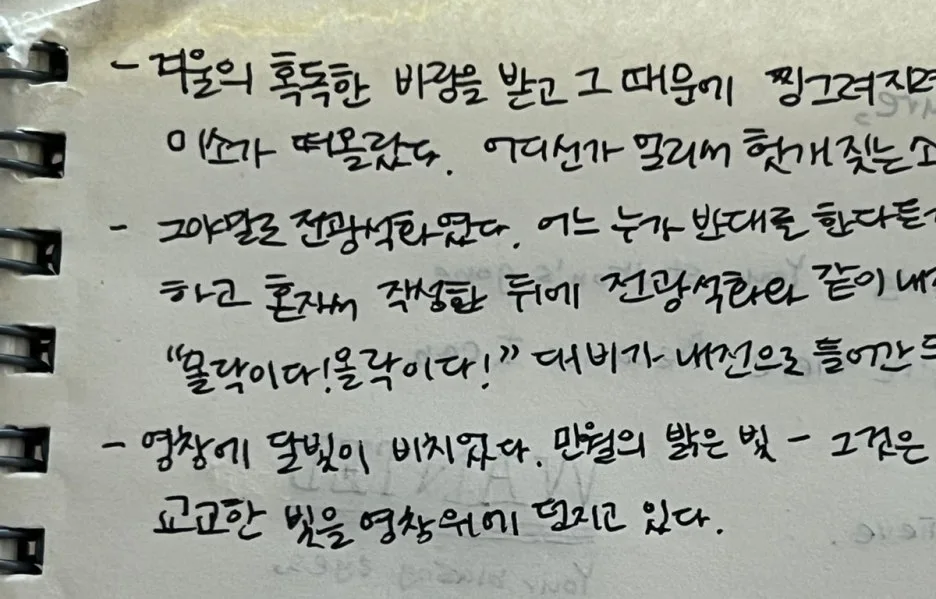 - 겨울의 혹독한 바람을 받고 그 때문에 찡그려지려
미소가 떠올랐다. 어디선가 멀리서 헛개 짖는 소
- 그야말로 전광석화였다. 어느 누가 반대를 한다든가
하고 혼자서 작성한 뒤에 전광석화와 같이 내
"몰락이다! 몰락이다!" 대비가 내전으로 들어간
- 영창에 달빛이 비치었다. 만월의 밝은 빛 - 그것은
교교한 빛을 영창 위에 던지고 있다.